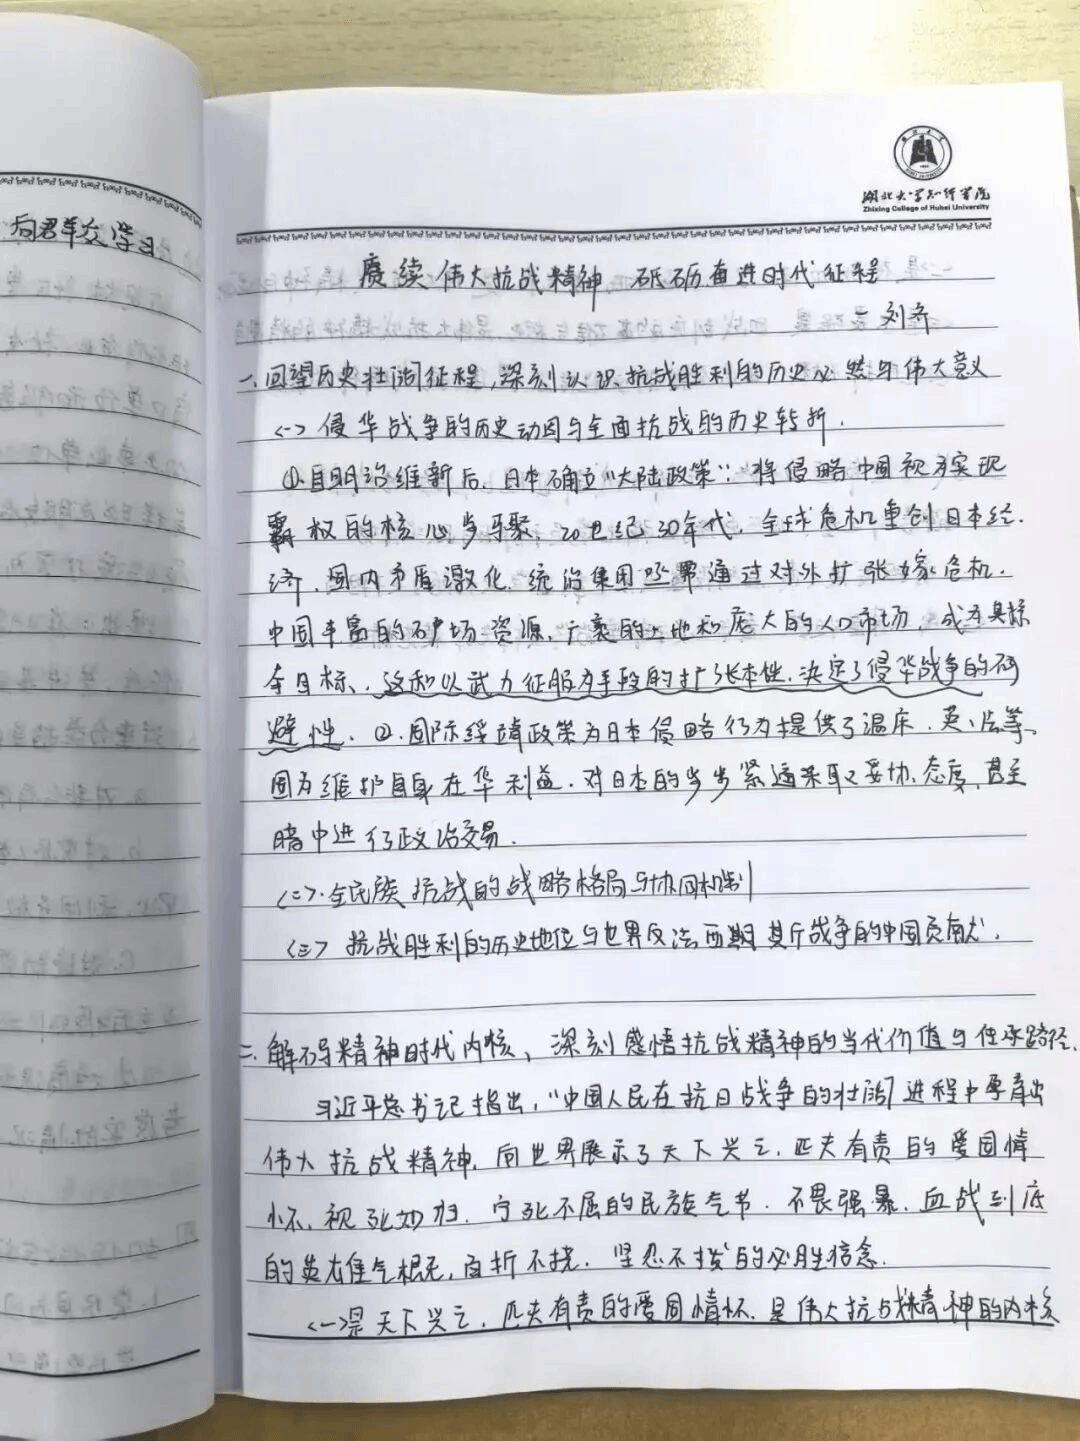 向君羊交学习
湖北大学知行学院
Zhixing College of Hubei University
赓续伟大抗战精神 砥砺奋进时代征程
— 刘齐
一、回望历史壮阔征程,深刻认识抗战胜利的历史必然与伟大意义
<一> 侵华战争的历史动因与全面抗战的历史转折.
①.自明治维新后,日本确立"大陆政策",将侵略中国视为实现
霸权的核心步骤,20世纪30年代,全球危机重创日本经.
济,国内矛盾激化,统治集团亟需通过对外扩张嫁危机.
中国丰富的矿场资源、广袤的土地和庞大的人口市场,成为其掠
夺目标、这种以武力征服为手段的扩张本性,决定了侵华战争的不可
避性、②.国际绥靖政策为日本侵略行为提供了温床.英、法等、
国为维护自身在华利益.对日本的步步紧逼采取妥协态度,甚至
暗中进行政治交易.
<二>.全民族抗战的战略格局与协同机制
<三> 抗战胜利的历史地位与世界反法西斯战争的中国贡献.
二、解码精神时代内核、深刻感悟抗战精神的当代价值与传承路径.
习近平总书记指出,"中国人民在抗日战争的壮阔进程中孕育出
伟大抗战精神,向世界展示了天下兴亡,匹夫有责的爱国情
怀、视死如归,宁死不屈的民族气节.不畏强暴、血战到底
的英雄气概,百折不挠.坚忍不拔的必胜信念.
<一>是天下兴亡,匹夫有责的爱国情怀.是伟大抗战精神的内核